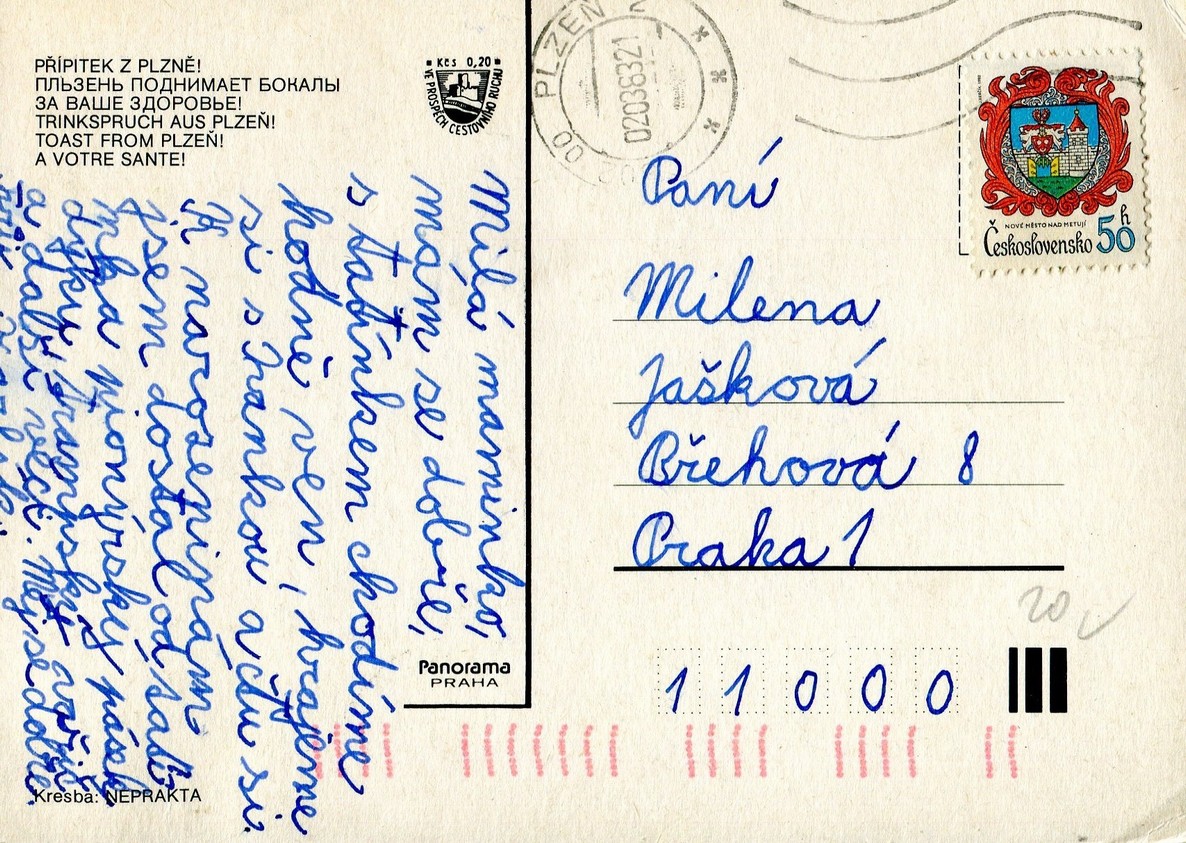 PŘÍPITEK Z PLZNĚ!
ПЛЬЗЕНЬ ПОДНИМАЕТ БОКАЛЫ
ЗА ВАШЕ ЗДОРОВЬЕ!
TRINKSPRUCH AUS PLZEŇ!
TOAST FROM PLZEŇ!
A VOTRE SANTE!
Kčs 0,20
VE PROSPĚCH CESTOVNÍHO RUCHU
Milá maminko,
mám se dobře,
s tatínkem chodíme
hodně ven, hrajeme
si s Hankou a čtu si.
K narozeninám
jsem dostal od
dýku,
a další věci. Měj se dobře.
Panorama
PRAHA
Kresba: NEPRAKTA
PLZEŇ
00
02038321
NOVÉ MĚSTO NAD METUJÍ
Československo 50 h
Paní
Milena
Jašková
Břehová 8
Praka 1
20
1 1 0 0 0